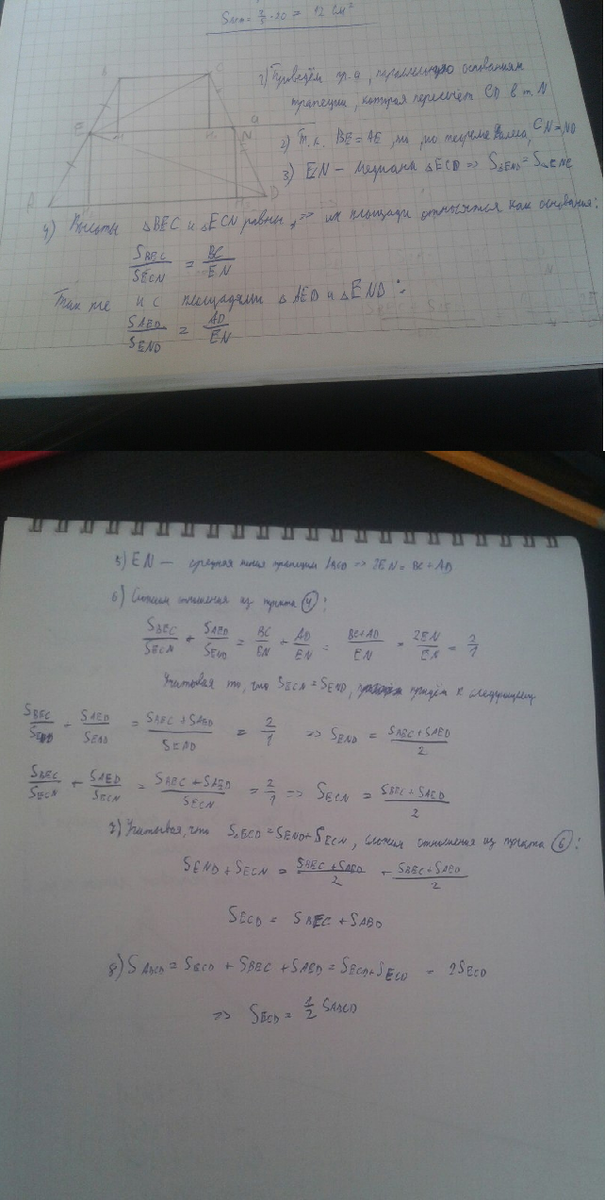 = 12 см²
1) Проведём пр. a, параллельную основаниям
трапеции, которая пересечёт CD в т. N
2) Т.к. BE = AE, то, по теореме Фалеса, CN = ND
3) EN – медиана △ECD => S△END = S△ENC
4) Высоты △BEC и △ECN равны, => их площади относятся как основания:
S BEC / S ECN = BC / EN
Так же и с площадями △AED и △END:
S AED / S END = AD / EN
5) EN – средняя линия трапеции ABCD => 2EN = BC + AD
6) Сложим отношения из пункта 4:
S BEC / S ECN + S AED / S ECD = BC / EN + AD / EN = BC+AD / EN = 2EN / EN = 2 / 1
Учитывая то, что S ECN = S END, придём к следующему
S BEC / S END + S AED / S END = S BEC + S AED / S END = 2 / 1 => S END = S BEC + S AED / 2
S BEC / S ECN + S AED / S ECN = S BEC + S AED / S ECN = 2 / 1 => S ECN = S BEC + S AED / 2
7) Учитывая, что S ECD = S END + S ECN, сложим отношения из пункта 6:
S END + S ECN = S BEC + S AED / 2 + S BEC + S AED / 2
S ECD = S BEC + S AED
8) S ABCD = S ECD + S BEC + S AED = S ECD + S ECD = 2S ECD
=> S ECD = 1/2 S ABCD